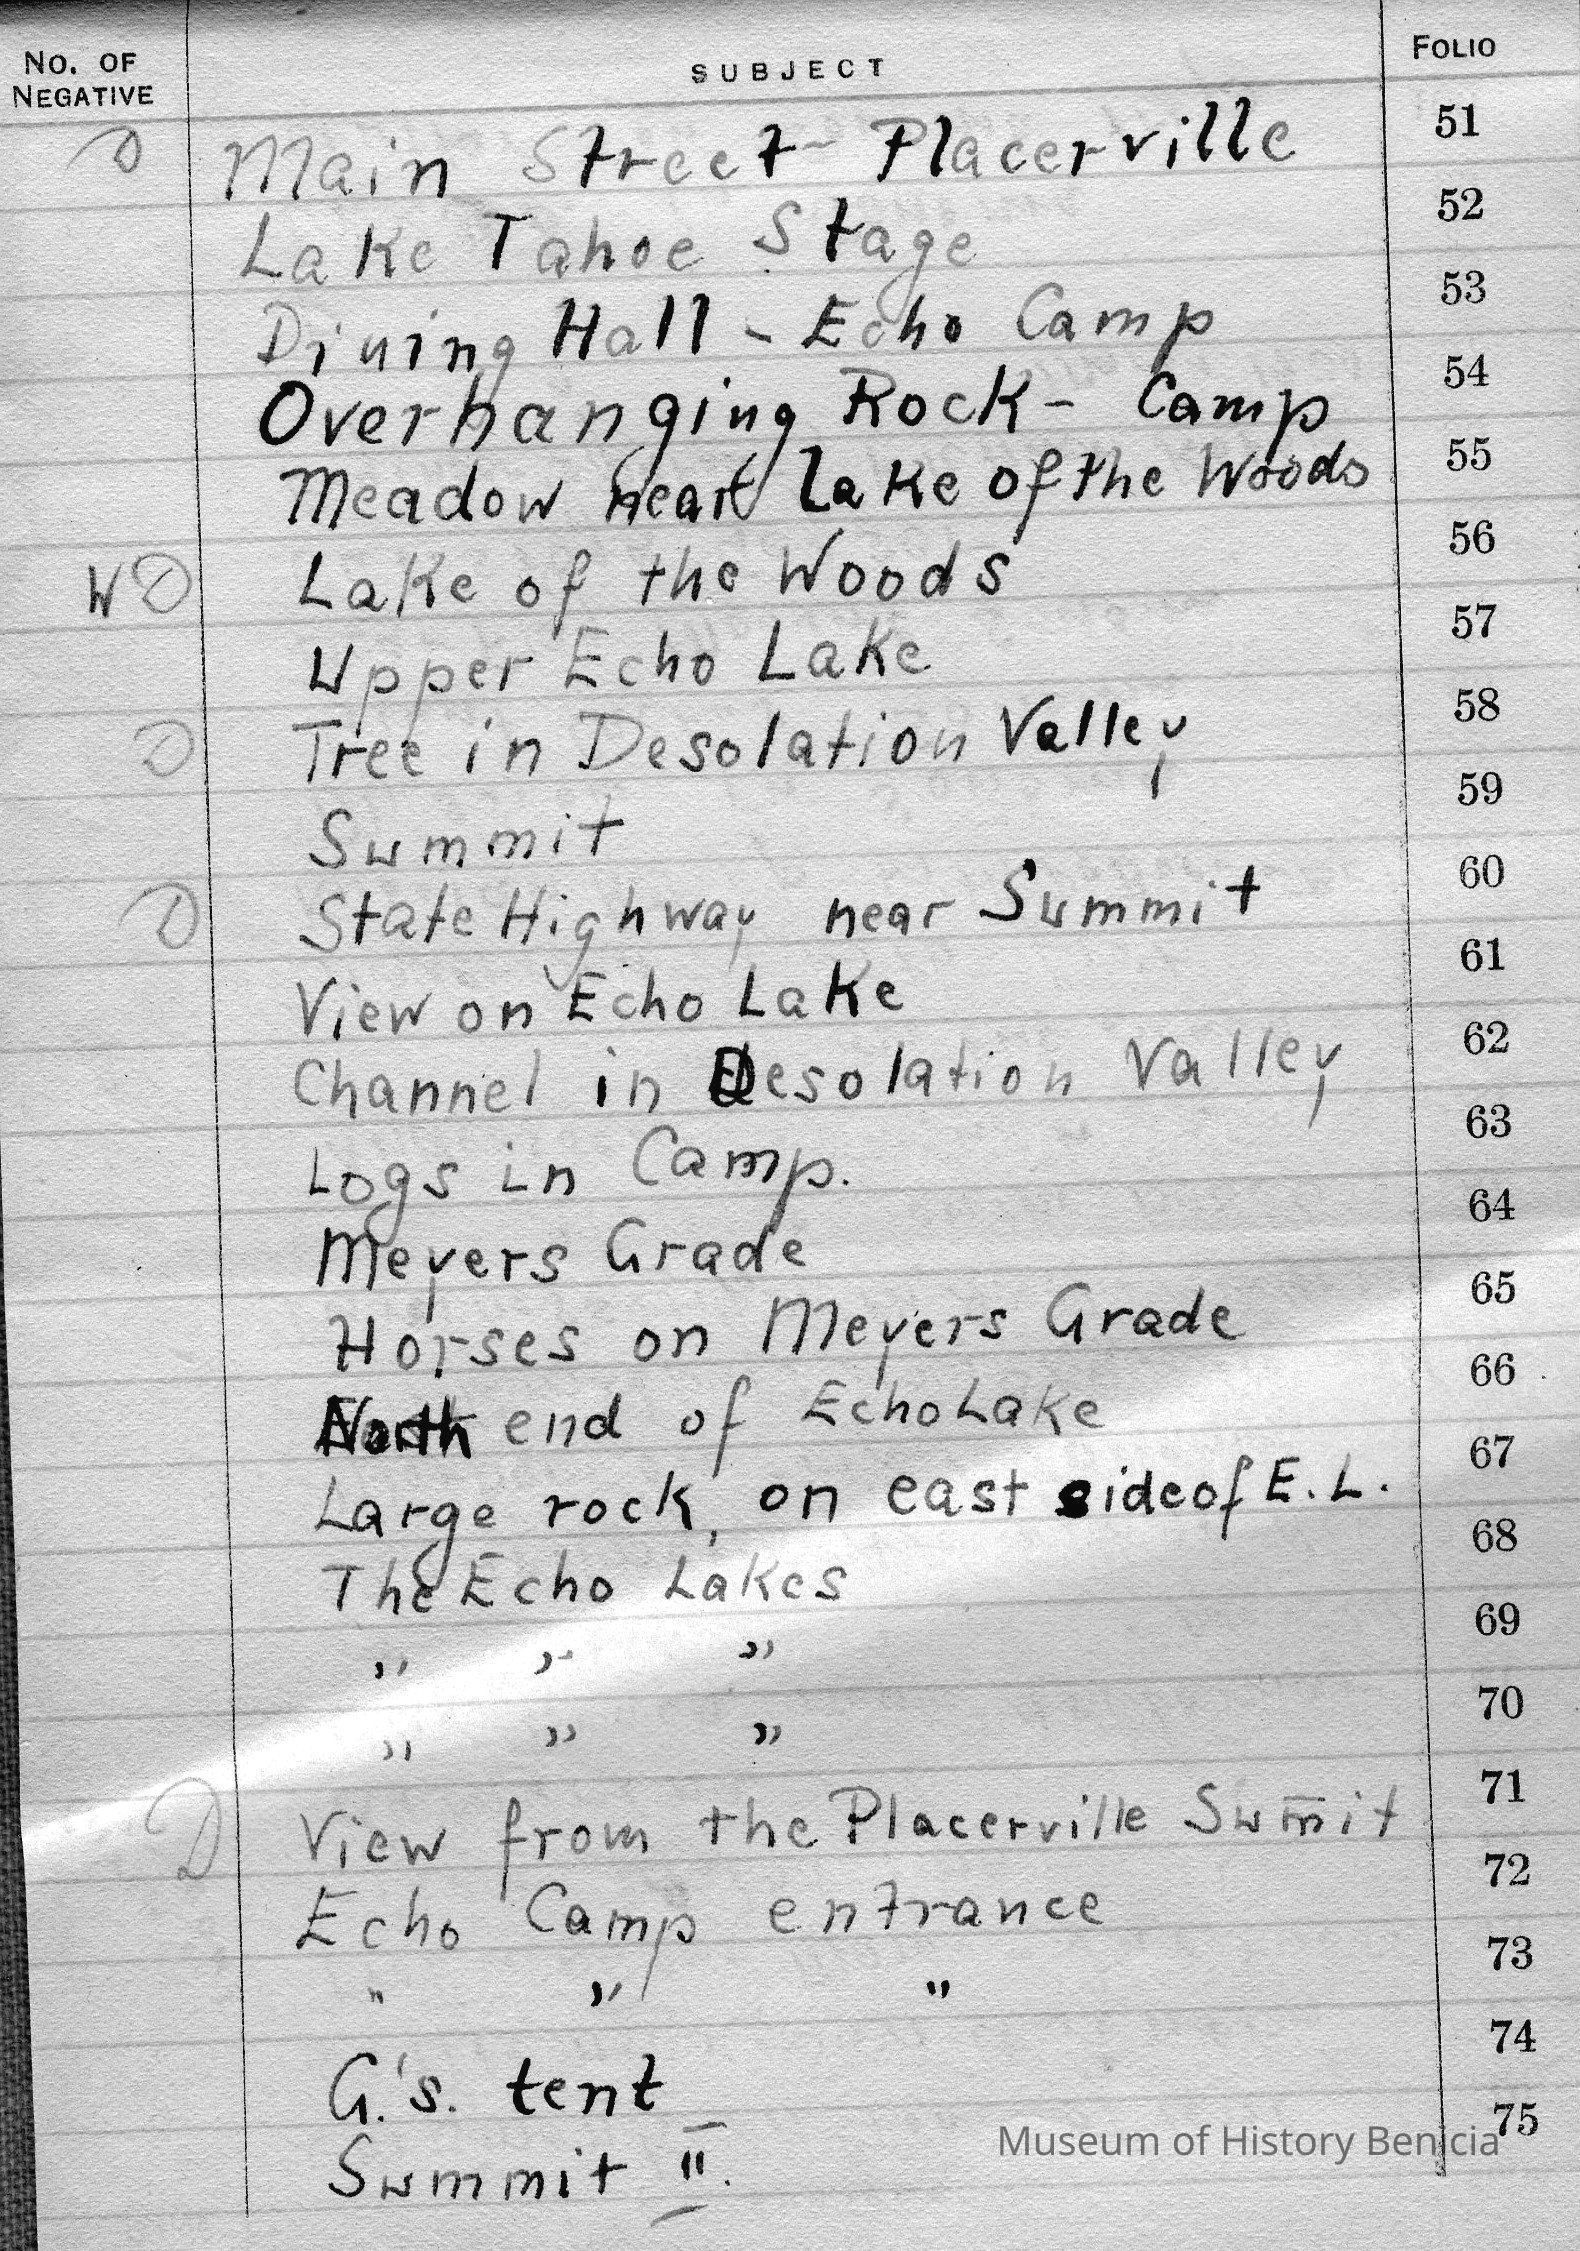 NO. OF NEGATIVE SUBJECT FOLIO
D Main Street - Placerville 51
Lake Tahoe Stage 52
Dining Hall - Echo Camp 53
Overhanging Rock - Camp 54
Meadow near Lake of the Woods 55
WD Lake of the Woods 56
Upper Echo Lake 57
D Tree in Desolation Valley 58
Summit 59
D State Highway near Summit 60
View on Echo Lake 61
Channel in Desolation Valley 62
Logs in Camp. 63
Meyers Grade 64
Horses on Meyers Grade 65
North end of Echo Lake 66
Large rock, on east side of E. L. 67
The Echo Lakes 68
" " " 69
" " " 70
D View from the Placerville Sum̅it 71
Echo Camp entrance 72
" " " 73
G.'s. tent 74
Summit II. 75
Museum of History Benicia